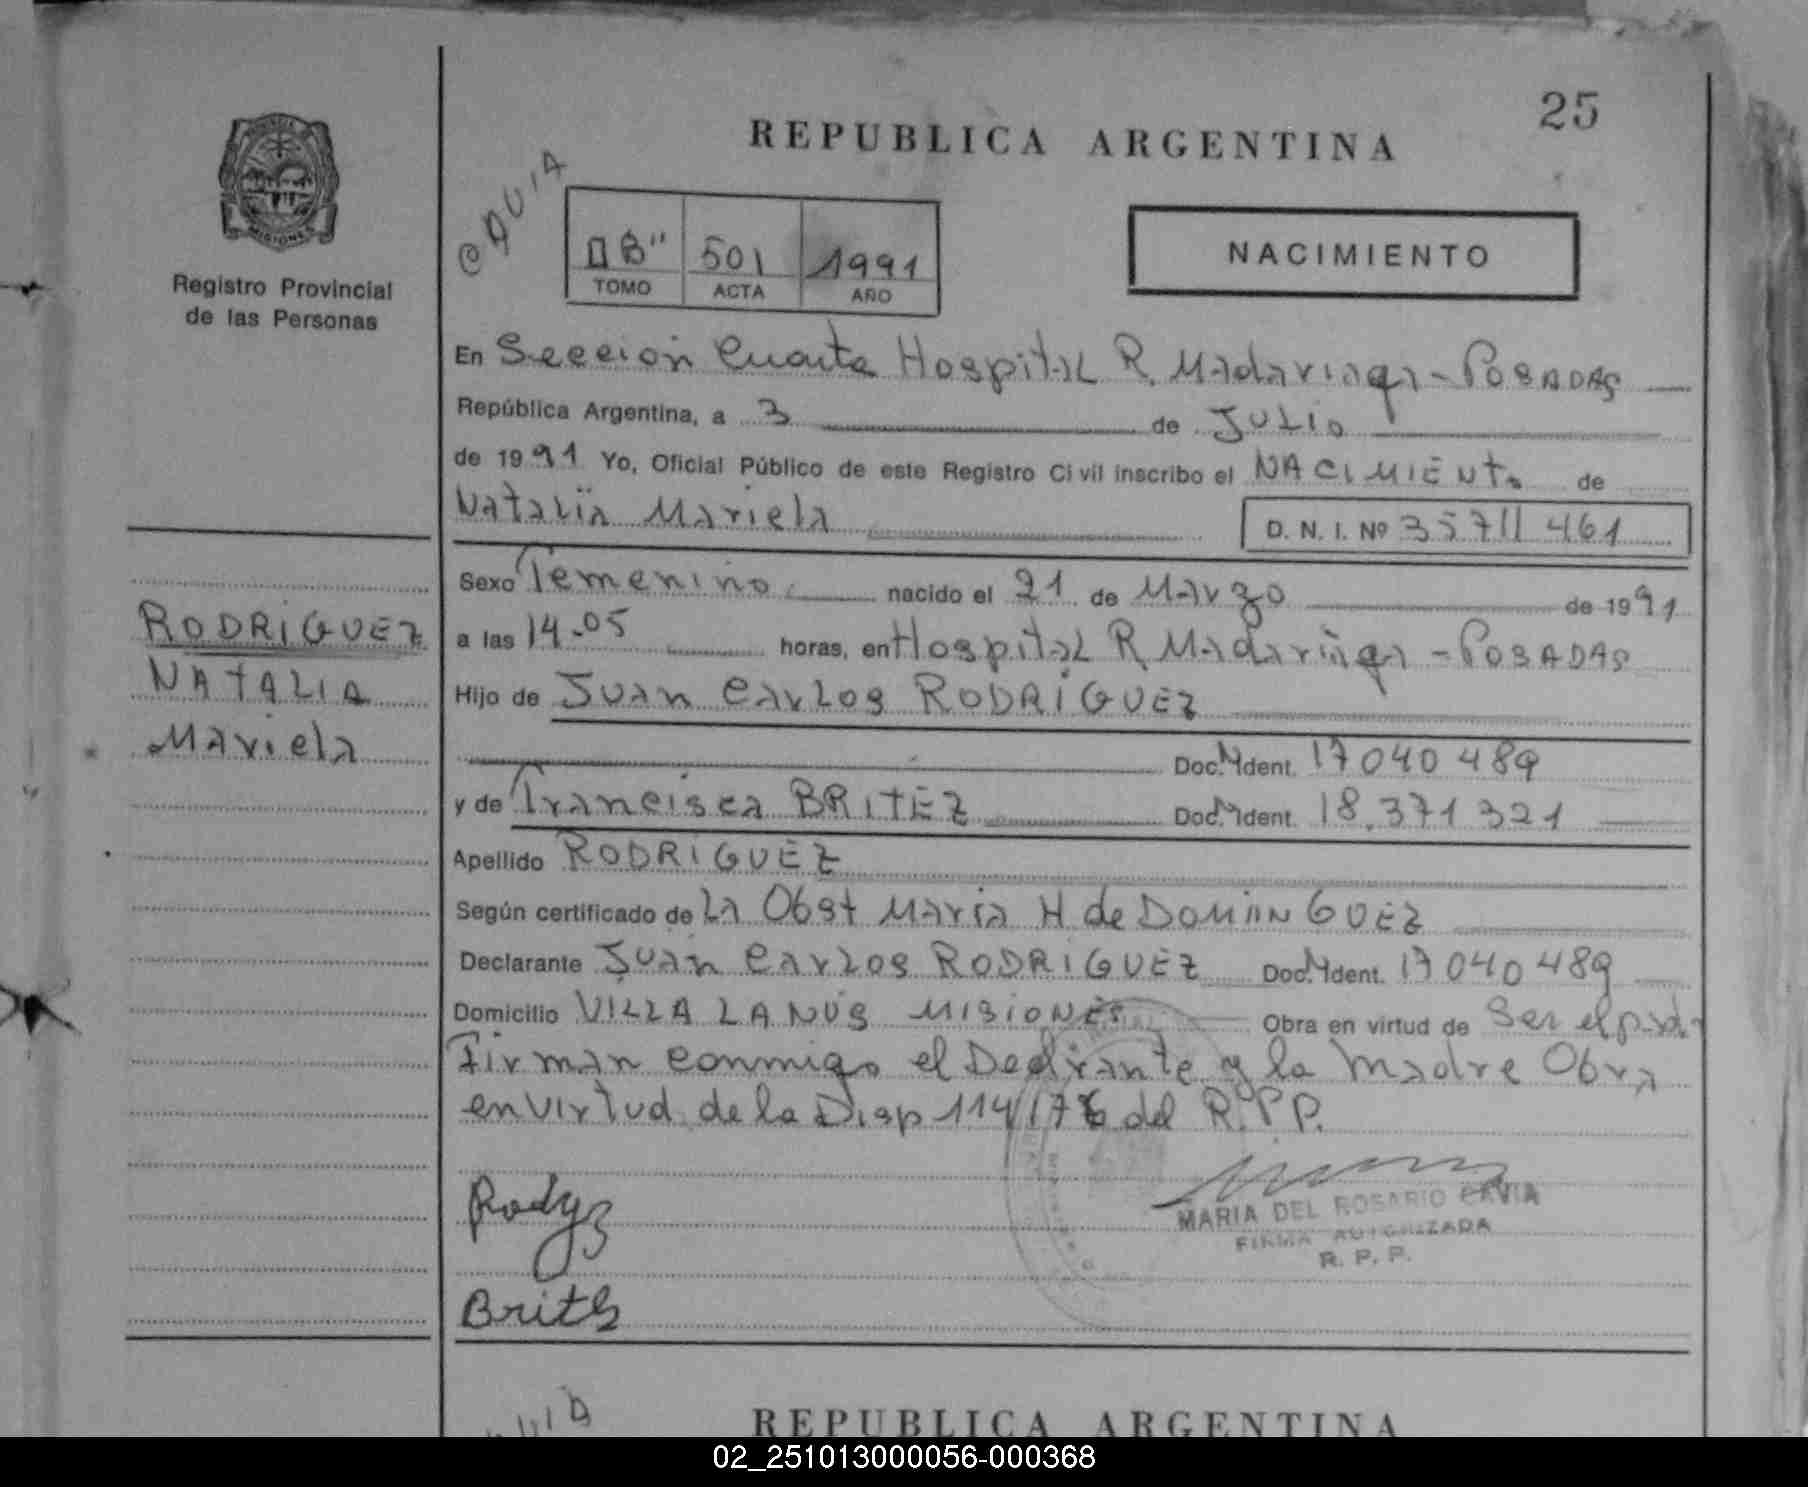 25
REPUBLICA ARGENTINA
PROVINCIA DE
MISIONES
Registro Provincial
de las Personas
II B" 501 1991
TOMO ACTA AÑO
NACIMIENTO
En Sección Cuarta Hospital R. Madariaga - POSADAS
República Argentina, a 3 de JULIO
de 1991 Yo, Oficial Público de este Registro Civil inscribo el NACIMIENTO de
Natalia Mariela
D. N. I. Nº 35711 461
Sexo Femenino nacido el 21 de Marzo de 1991
a las 14.05 horas, en Hospital R. Madariaga - POSADAS
Hijo de Juan Carlos RODRIGUEZ
Doc. Ident. 17040489
y de Francisca BRITEZ Doc. Ident. 18.371321
Apellido RODRIGUEZ
Según certificado de La Obst Maria H de DOMINGUEZ
Declarante Juan Carlos RODRIGUEZ Doc. Ident. 17040489
Domicilio VILLA LANUS MISIONES Obra en virtud de Ser el padre
Firman conmigo el Declarante y la Madre Obra
en virtud de la Disp 114/76 del R.P.P.
RODRIGUEZ
NATALIA
Mariela
MARIA DEL ROSARIO CAVIA
FIRMA AUTORIZADA
R. P. P.
REPUBLICA ARGENTINA
02_251013000056-000368